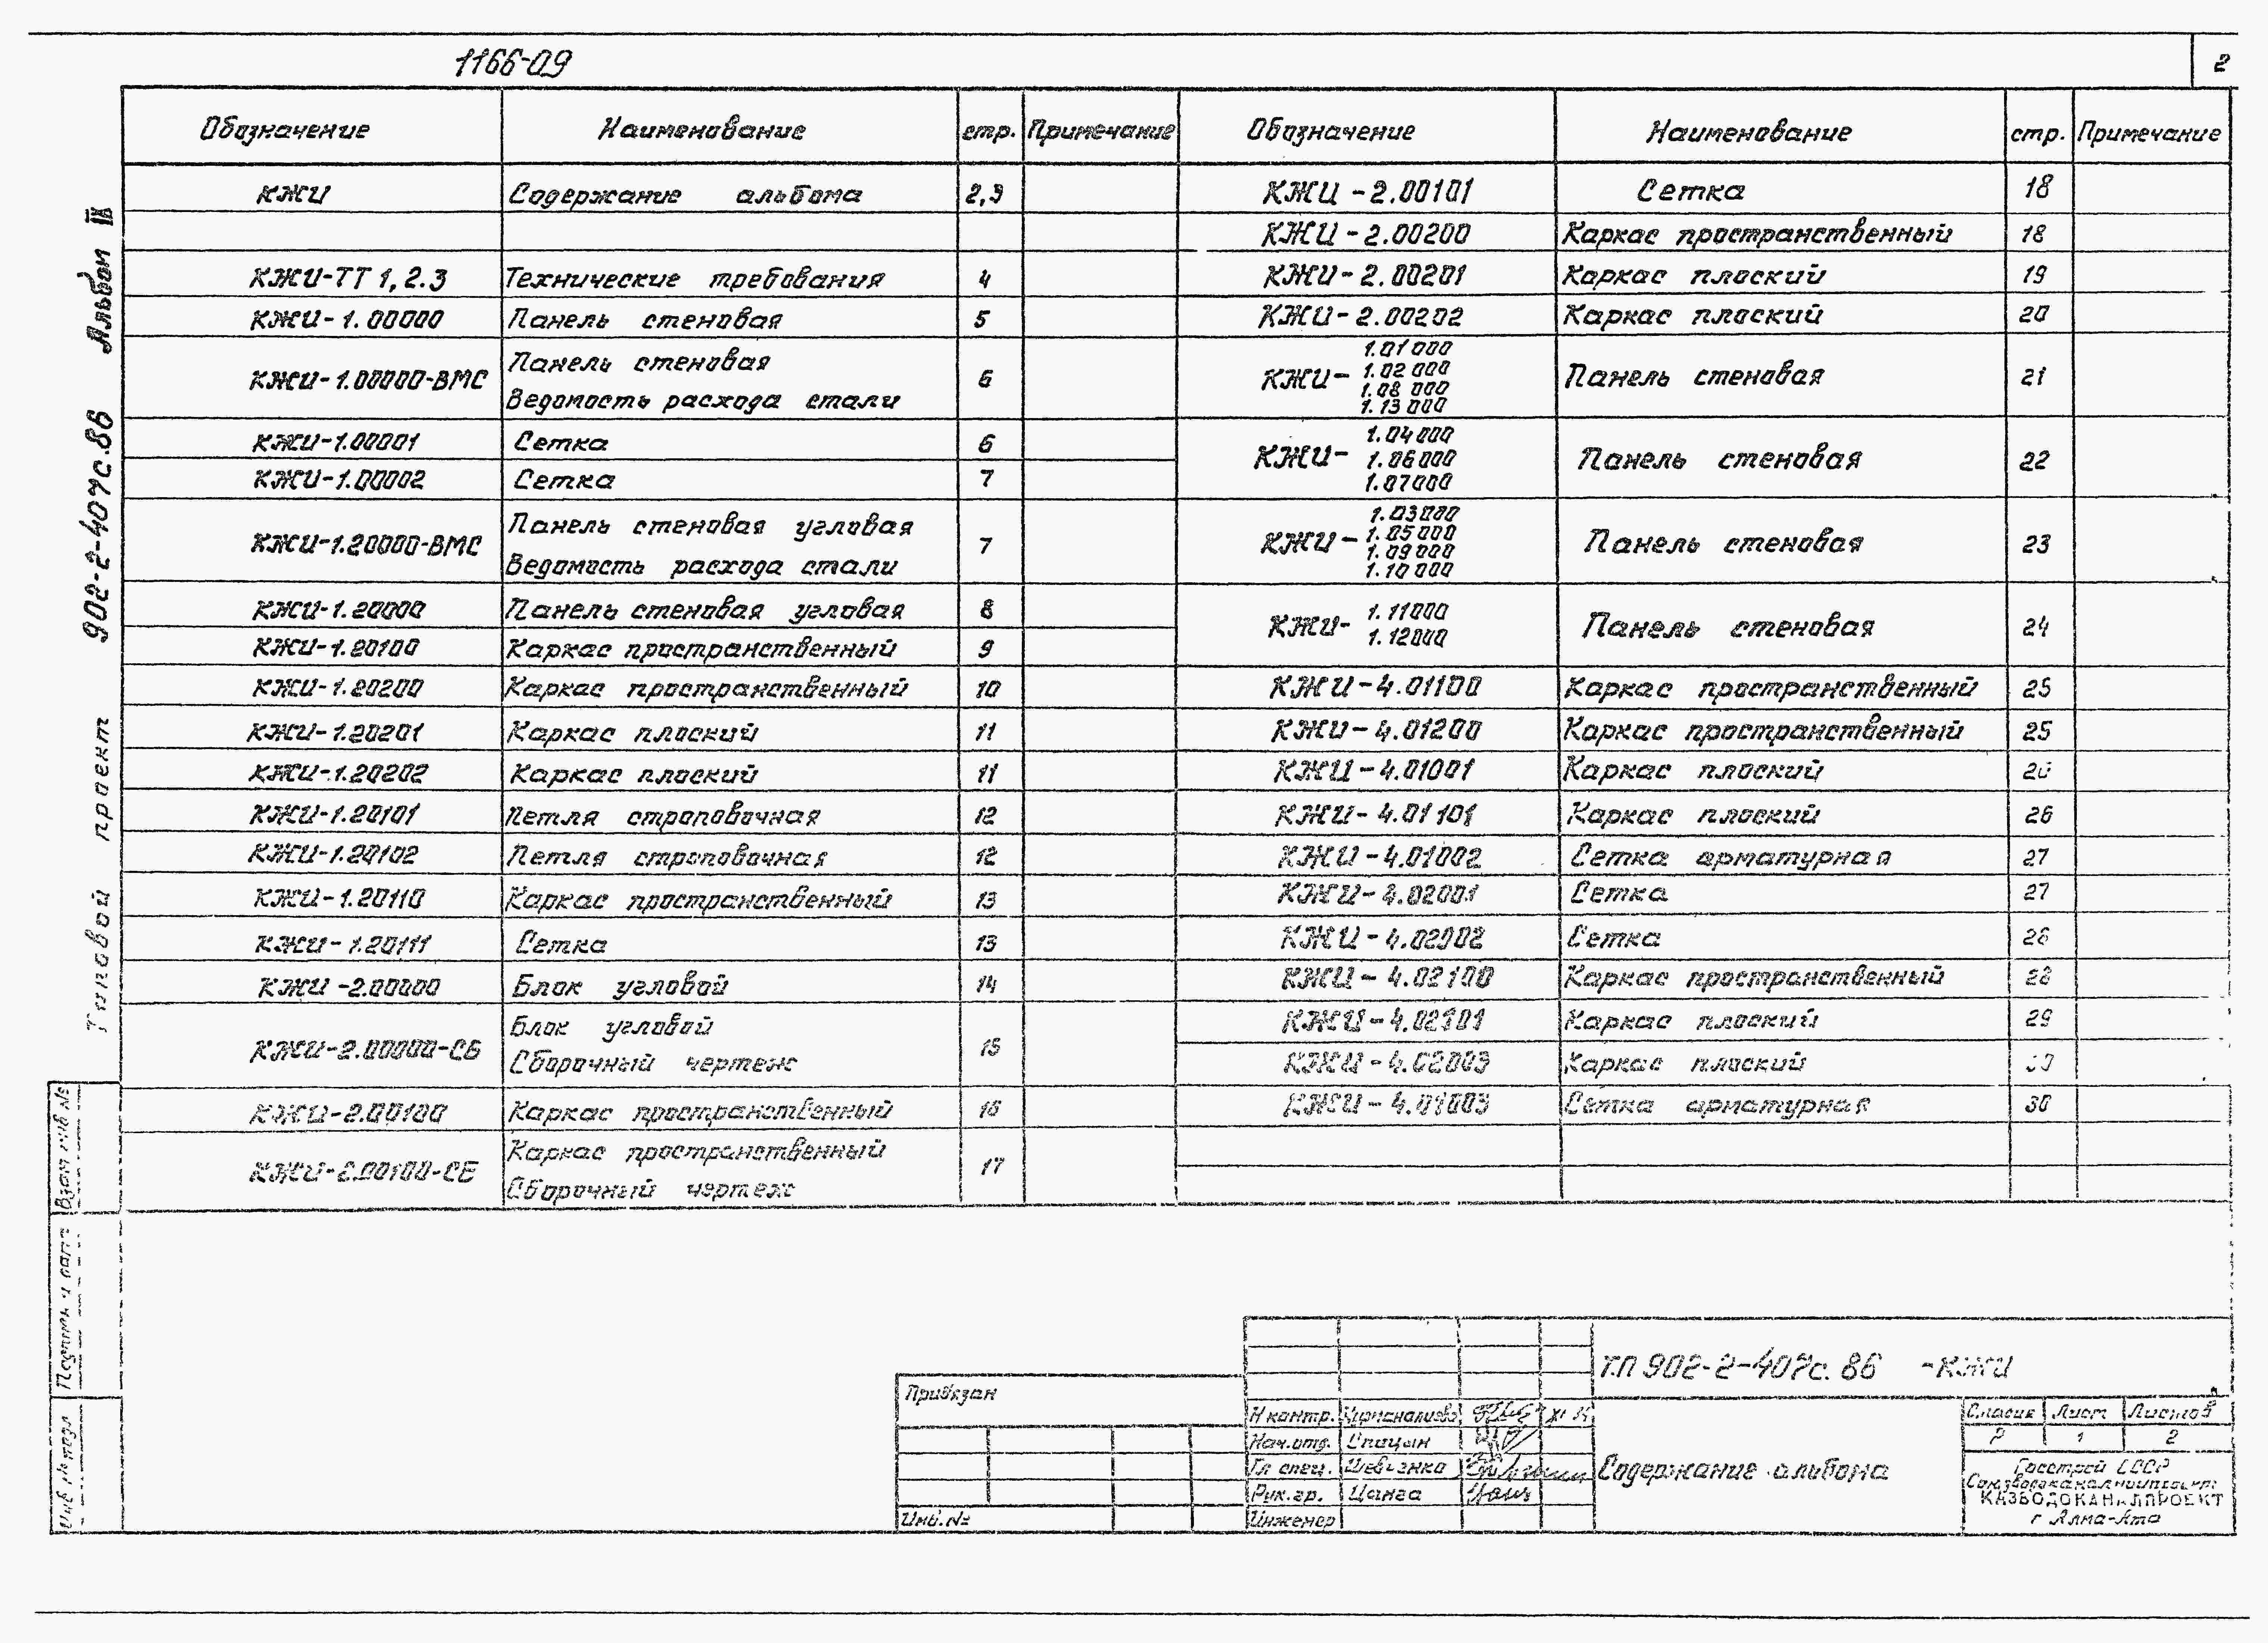 1166-09
2
Типовой проект 902-2-407с.86 Альбом IX
Обозначение Наименование стр. Примечание
КЖИ Содержание альбома 2,3
КЖИ-ТТ 1, 2.3 Технические требования 4
КЖИ-1.00000 Панель стеновая 5
КЖИ-1.00000-ВМС Панель стеновая
Ведомость расхода стали 6
КЖИ-1.00001 Сетка 6
КЖИ-1.00002 Сетка 7
КЖИ-1.20000-ВМС Панель стеновая угловая
Ведомость расхода стали 7
КЖИ-1.20000 Панель стеновая угловая 8
КЖИ-1.20100 Каркас пространственный 9
КЖИ-1.20200 Каркас пространственный 10
КЖИ-1.20201 Каркас плоский 11
КЖИ-1.20202 Каркас плоский 11
КЖИ-1.20101 Петля строповочная 12
КЖИ-1.20102 Петля строповочная 12
КЖИ-1.20110 Каркас пространственный 13
КЖИ-1.20111 Сетка 13
КЖИ-2.00000 Блок угловой 14
КЖИ-2.00000-СБ Блок угловой
Сборочный чертеж 15
КЖИ-2.00100 Каркас пространственный 16
КЖИ-2.00100-СБ Каркас пространственный
Сборочный чертеж 17
Обозначение Наименование стр. Примечание
КЖИ-2.00101 Сетка 18
КЖИ-2.00200 Каркас пространственный 18
КЖИ-2.00201 Каркас плоский 19
КЖИ-2.00202 Каркас плоский 20
КЖИ- 1.01000
1.02000
1.08000
1.13000
Панель стеновая 21
КЖИ- 1.04000
1.06000
1.07000
Панель стеновая 22
КЖИ- 1.03000
1.05000
1.09000
1.10000
Панель стеновая 23
КЖИ- 1.11000
1.12000
Панель стеновая 24
КЖИ-4.01100 Каркас пространственный 25
КЖИ-4.01200 Каркас пространственный 25
КЖИ-4.01001 Каркас плоский 26
КЖИ-4.01101 Каркас плоский 26
КЖИ-4.01002 Сетка арматурная 27
КЖИ-4.02001 Сетка 27
КЖИ-4.02002 Сетка 28
КЖИ-4.02100 Каркас пространственный 28
КЖИ-4.02101 Каркас плоский 29
КЖИ-4.02003 Каркас плоский
КЖИ-4.01003 Сетка арматурная 30
Взам инв №
Подпись и дата
Инв № подл
Привязан
Инв.№
Т.П 902-2-407с.86 -КЖИ
Н контр. XI
Нач.отд. Спицын
Гл спец. Шевченко
Рук.гр. Цанга
Инженер
Содержание альбома
Стадия Лист Листов
Р 1 2
Госстрой СССР
Союзводоканалниипроект
КАЗВОДОКАНАЛПРОЕКТ
г Алма-Ата